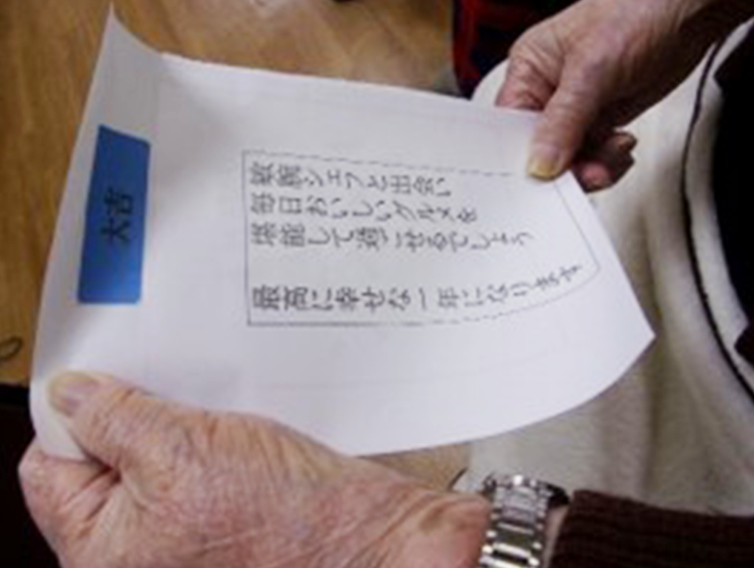 大吉
敏腕シェフと出会い
毎日おいしいグルメを
堪能して過ごせるでしょう
最高に幸せな一年になります